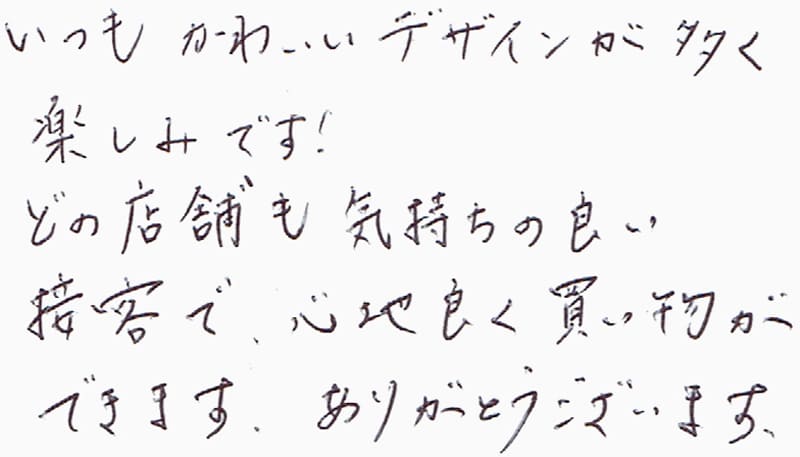 いつも かわいい デザインが 多く
楽しみです!
どの店舗も 気持ちの良い
接客で、心地良く 買い物が
できます。ありがとうございます。